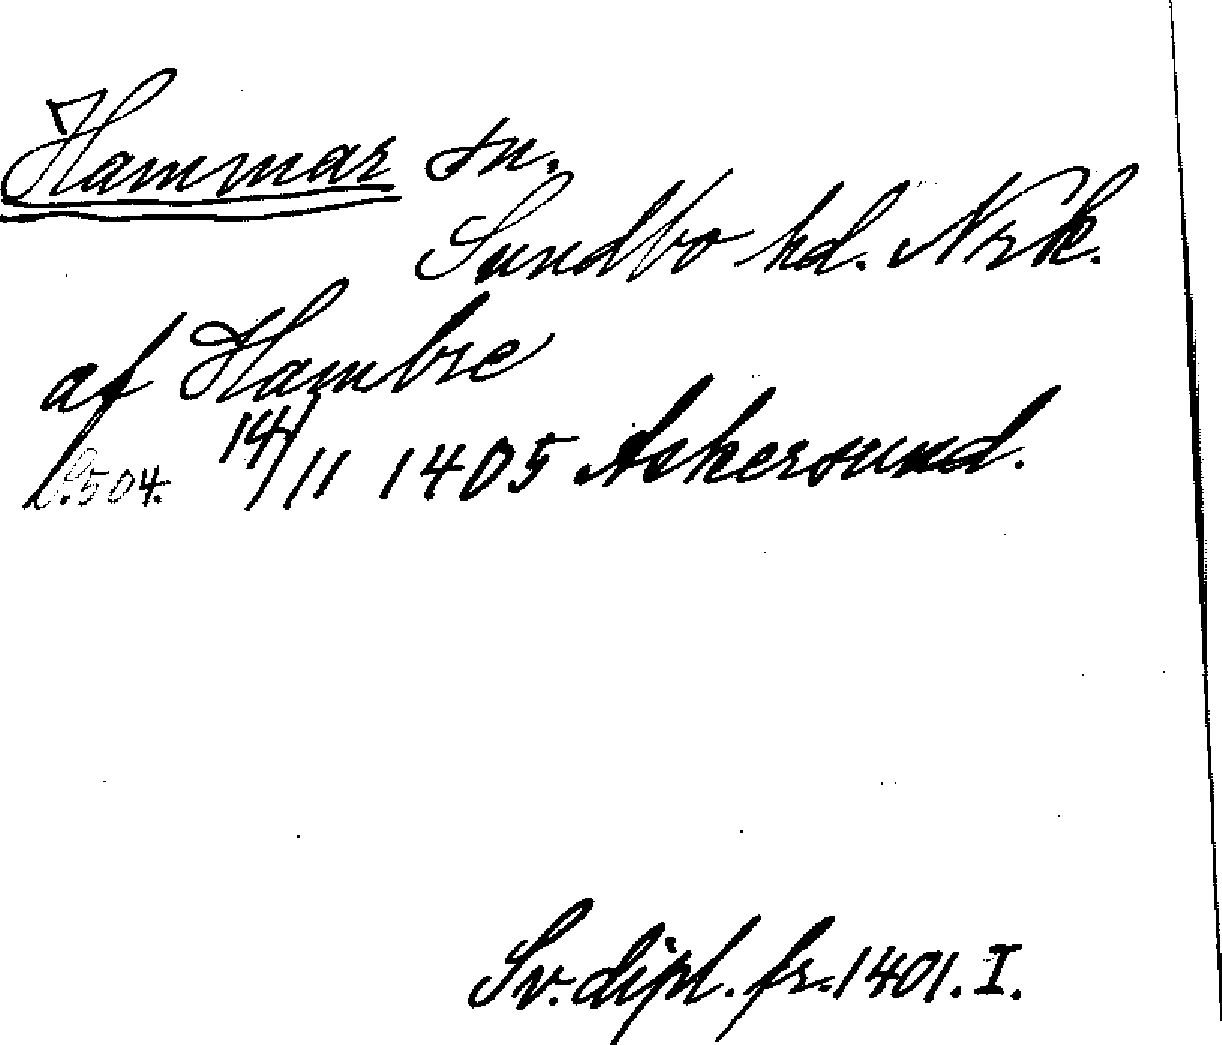 Hammar sn.
Sundbo hd. Nrk.
af Hambre
S. 504. 14/11 1405 Askersund.
Sv. dipl. fr. 1401. I.